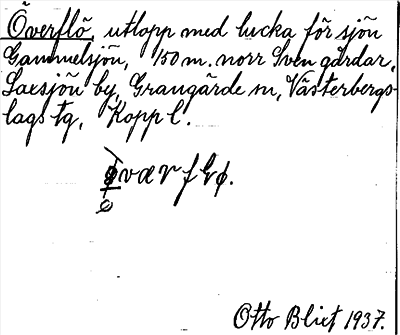 Överflö, utlopp med lucka för sjön
Gammelsjön, 150 m. norr Sven gårdar,
Saxsjön by, Grangärde sn, Västerbergs-
lags tg, Kopp l.
øvævflø.
Otto Blixt 1937.